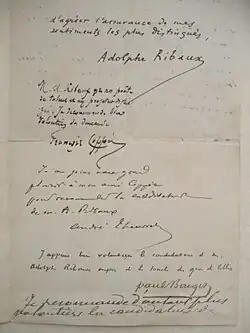 d'agréer l'assurance de mes
sentiments les plus distingués,
Adolphe Ribaux
M. A. Ribaux est un poète
de talent et un
qui. Je recommande bien
volontiers sa demande
François Coppée
Je me joins avec grand
plaisir à mon ami Coppée
pour recommander la candidature
de M. A. Ribaux
André Theuriet
J'appuie bien volontiers la candidature de M.
Adolphe Ribaux auprès de la Société des gens de lettres
Paul Bourget
Je recommande d'autant plus
volontiers la candidature de